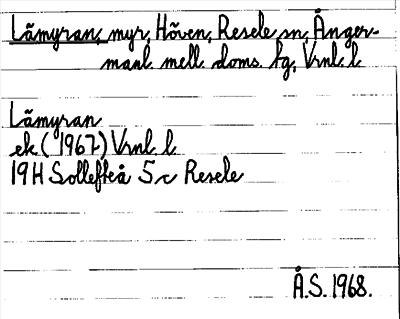 Lämyran, myr, Höven, Resele sn, Ånger-
manl. mell. doms. hg, Vrnl. l
Lämyran
ek (1967) Vrnl. l
19H Sollefteå 5c Resele
Å.S. 1968.